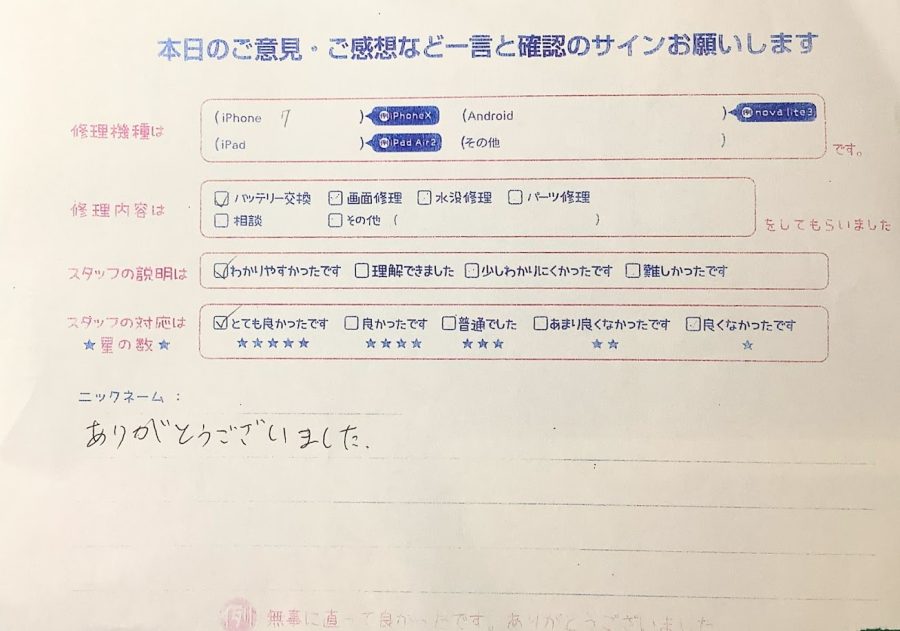 本日のご意見・ご感想など一言と確認のサインお願いします
修理機種は
(iPhone 7 ) 例 iPhoneX (Android ) 例 nova lite3
(iPad ) 例 iPad Air2 (その他 ) です。
修理内容は
☑バッテリー交換 □画面修理 □水没修理 □パーツ修理
□相談 □その他 ( ) をしてもらいました
スタッフの説明は ☑わかりやすかったです □理解できました □少しわかりにくかったです □難しかったです
スタッフの対応は ☑とても良かったです □良かったです □普通でした □あまり良くなかったです □良くなかったです
★星の数★ ★★★★★ ★★★★ ★★★ ★★ ★
ニックネーム：
ありがとうございました.
例 無事に直って良かったです。ありがとうございました